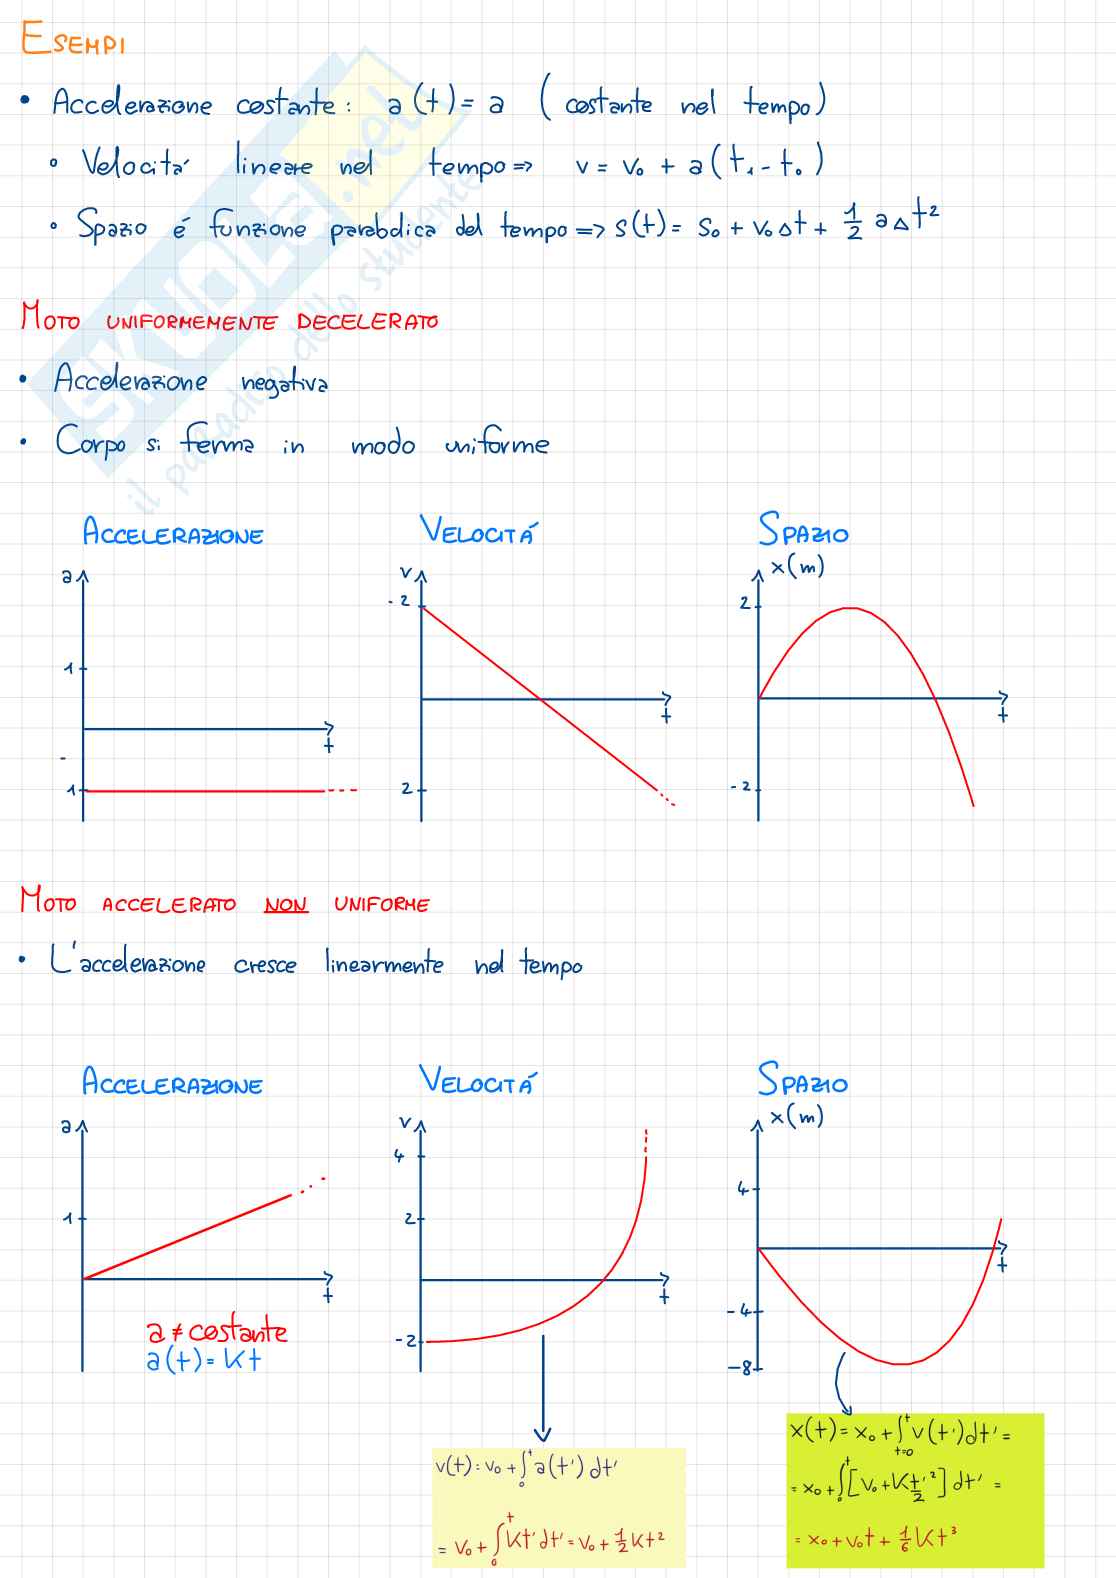 ESEMPI
• Accelerazione costante: a(t)= a (costante nel tempo)
◦ Velocitá lineare nel tempo => v = v₀ + a(t₁ - t₀)
◦ Spazio é funzione parabolica del tempo => s(t) = s₀ + v₀Δt + 1/2 aΔt²
MOTO UNIFORMEMENTE DECELERATO
• Accelerazione negativa
• Corpo si ferma in modo uniforme
SKUOLA.net
il paradiso dello studente
ACCELERAZIONE VELOCITÁ SPAZIO
a v x(m)
-2 2
1
t t t
-
1 2 -2
MOTO ACCELERATO NON UNIFORME
• L'accelerazione cresce linearmente nel tempo
ACCELERAZIONE VELOCITÁ SPAZIO
a v x(m)
4
1 2 4
t t t
a ≠ costante
a(t) = Kt
-2 -4
-8
v(t) = v₀ + ∫₀ᵗ a(t') dt'
= v₀ + ∫₀ᵗ Kt' dt' = v₀ + 1/2 Kt²
x(t) = x₀ + ∫ₜ₌₀ᵗ v(t') dt' =
= x₀ + ∫₀ᵗ [v₀ + K t'²/2] dt' =
= x₀ + v₀t + 1/6 Kt³